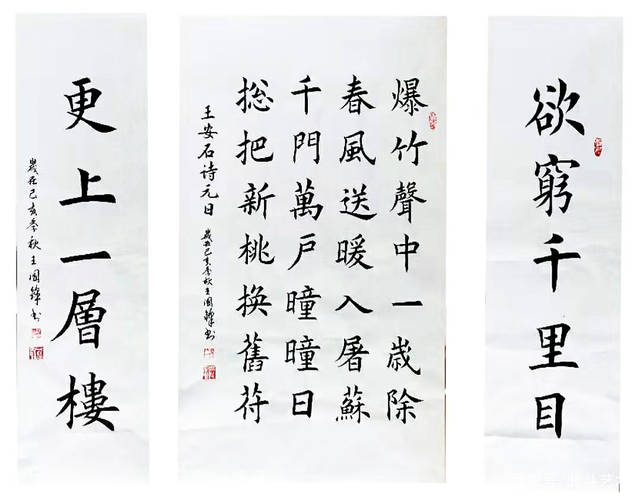 欲窮千里目
爆竹聲中一歲除
春風送暖入屠蘇
千門萬戶曈曈日
総把新桃換舊符
王安石诗元日
歲在己亥季秋王國鋒书
更上一層樓
歲在己亥季秋王國鋒书